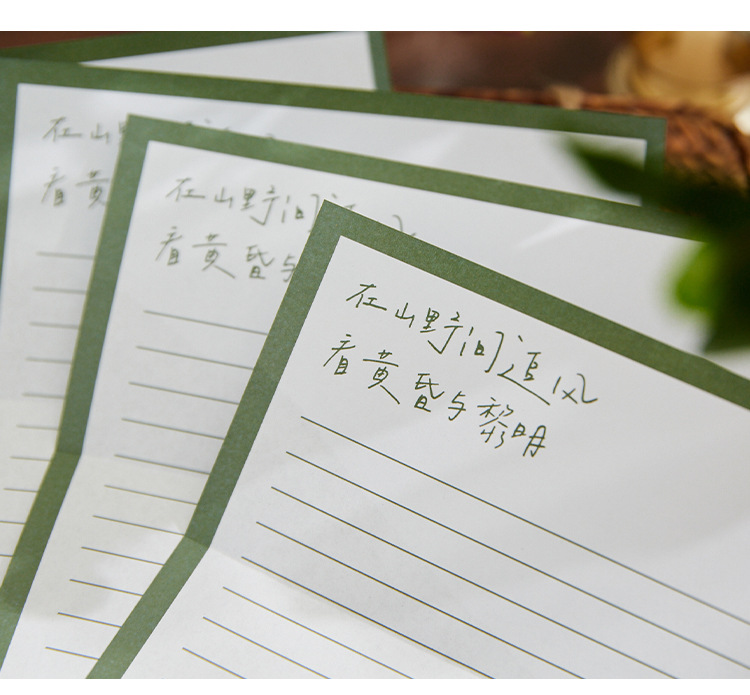 在山
看黄
在山野间追风
看黄昏与
在山野间追风
看黄昏与黎明